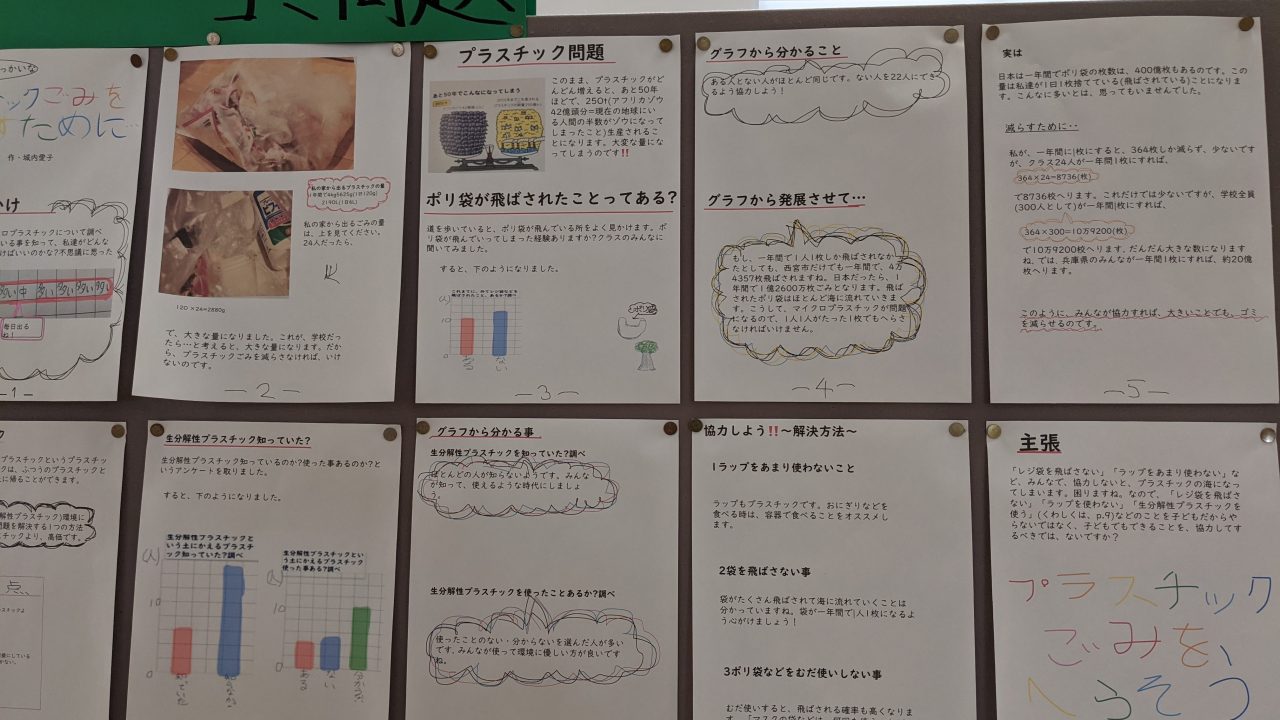 ごみ問題
っかいな
ックごみを
すために…
作・城内愛子
かけ
ロプラスチックについて調べ
いる事を知って、私達がどんな
けばいいのかな?不思議に思った
多い 中 多い 多い 多い 多い
毎日出る
ね!
ー1ー
私の家から出るプラスチックの量
1年間で4kg5625g(1日120g)
2190L(1日6L)
私の家から出るごみの量
は、上を見てください。
24人だったら、
120×24=2880g
で、大きな量になりました。これが、学校だっ
たら…と考えると、大きな量になります。だか
ら、プラスチックごみを減らさなければ、いけ
ないのです。
ー2ー
プラスチック問題
あと50年でこんなになってしまう
このまま、プラスチックがど
んどん増えると、あと50年
ほどで、250t(アフリカゾウ
42億頭分=現在の地球にい
る人間の半数がゾウになって
しまったこと)生産されるこ
とになります。大変な量にな
ってしまうのです‼
ポリ袋が飛ばされたことってある?
道を歩いていると、ポリ袋が飛んでいる所をよく見かけます。ポリ
袋が飛んでいってしまった経験ありますか?クラスのみんなに
聞いてみました。
すると、下のようになりました。
(人)
10
0
ある
ない
ー3ー
グラフから分かること
ある人とない人がほとんど同じです。ない人を22人にでき
るよう協力しよう!
グラフから発展させて…
もし、一年間で1人1枚しか飛ばされなかっ
たとしても、西宮市だけでも一年間で、4万
4357枚飛ばされますね。日本だったら、1
年間で1億2600万枚ごみとなります。飛
ばされたポリ袋はほとんど海に流れていきま
す。こうして、マイクロプラスチックが問題
になるので、1人1人がたった1枚でもへらさ
なければいけません。
ー4ー
実は
日本は一年間でポリ袋の枚数は、400億枚もあるのです。この
量は私達が1日1枚捨てている(飛ばされている)ことになりま
す。こんなに多いとは、思ってもいませんでした。
減らすために・・
私が、一年間に1枚にすると、364枚しか減らず、少ないです
が、クラス24人が一年間1枚にすれば、
364×24=8736(枚)
で8736枚へります。これだけでは少ないですが、学校全員
(300人として)が一年間1枚にすれば、
364×300=10万9200(枚)
で10万9200枚へります。だんだん大きな数になります
ね。では、兵庫県のみんなが一年間1枚にすれば、約20億
枚へります。
このように、みんなが協力すれば、大きいことでも、ゴミ
を減らせるのです。
ー5ー
ク
プラスチックというプラスチッ
クは、ふつうのプラスチックと
土に帰ることができます。
解性プラスチック)環境に
問題を解決する1つの方法
スチックより、高価です。
点
生分解性プラスチック知っていた?
生分解性プラスチック知っているのか?使った事あるのか?と
いうアンケートを取りました。
すると、下のようになりました。
生分解性プラスチックと
いう土にかえるプラスチ
ック知っていた?調べ
(人)
10
0
知っていた
知らなかった
生分解性プラスチックとい
う土にかえるプラスチック
使った事ある?調べ
(人)
10
0
ある
ない
分からない
グラフから分かる事
生分解性プラスチックを知っていた?調べ
ほとんどの人が知らないようです。みんな
が知って、使えるような時代にしましょ
生分解性プラスチックを使ったことあるか?調べ
使ったことのない・分からないを選んだ人が多い
です。みんなが使って環境に優しい方が良いです
ね。
協力しよう‼〜解決方法〜
1ラップをあまり使わないこと
ラップもプラスチックです。おにぎりなどを
食べる時は、容器で食べることをオススメし
ます。
2袋を飛ばさない事
袋がたくさん飛ばされて海に流れていくことは
分かっていますね。袋が一年間で1人1枚になるよ
う心がけましょう!
3ポリ袋などをむだ使いしない事
むだ使いすると、飛ばされる確率も高くなりま
主張
「レジ袋を飛ばさない」「ラップをあまり使わない」な
ど、みんなで、協力しないと、プラスチックの海になっ
てしまいます。困りますね。なので、「レジ袋を飛ばさ
ない」「ラップを使わない」「生分解性プラスチックを
使う」(くわしくは、p.9)などのことを子どもだからや
らないではなく、子どもでもできることを、協力してす
るべきでは、ないですか?
プラスチック
ごみを、
へらそう